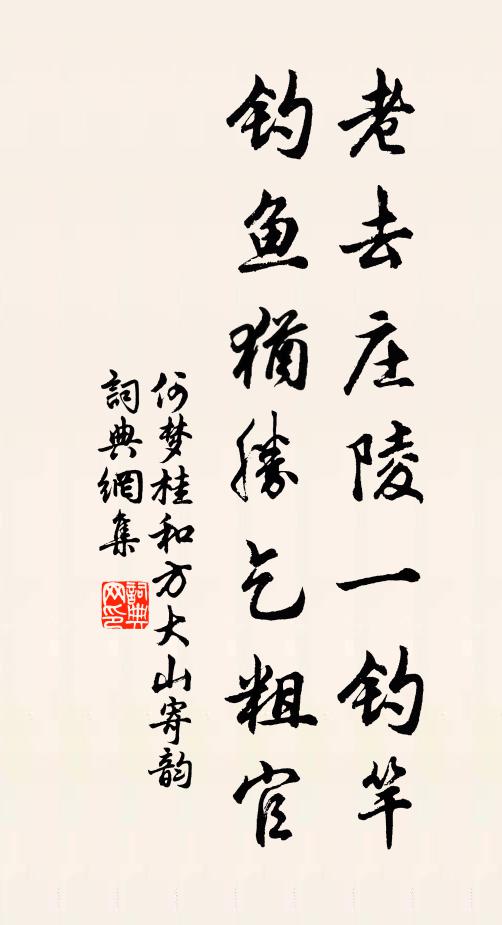 老去庄陵一钓竿
钓鱼犹勝乞粗官
何梦桂和方大山寄韵
詞典網集
詞典网印